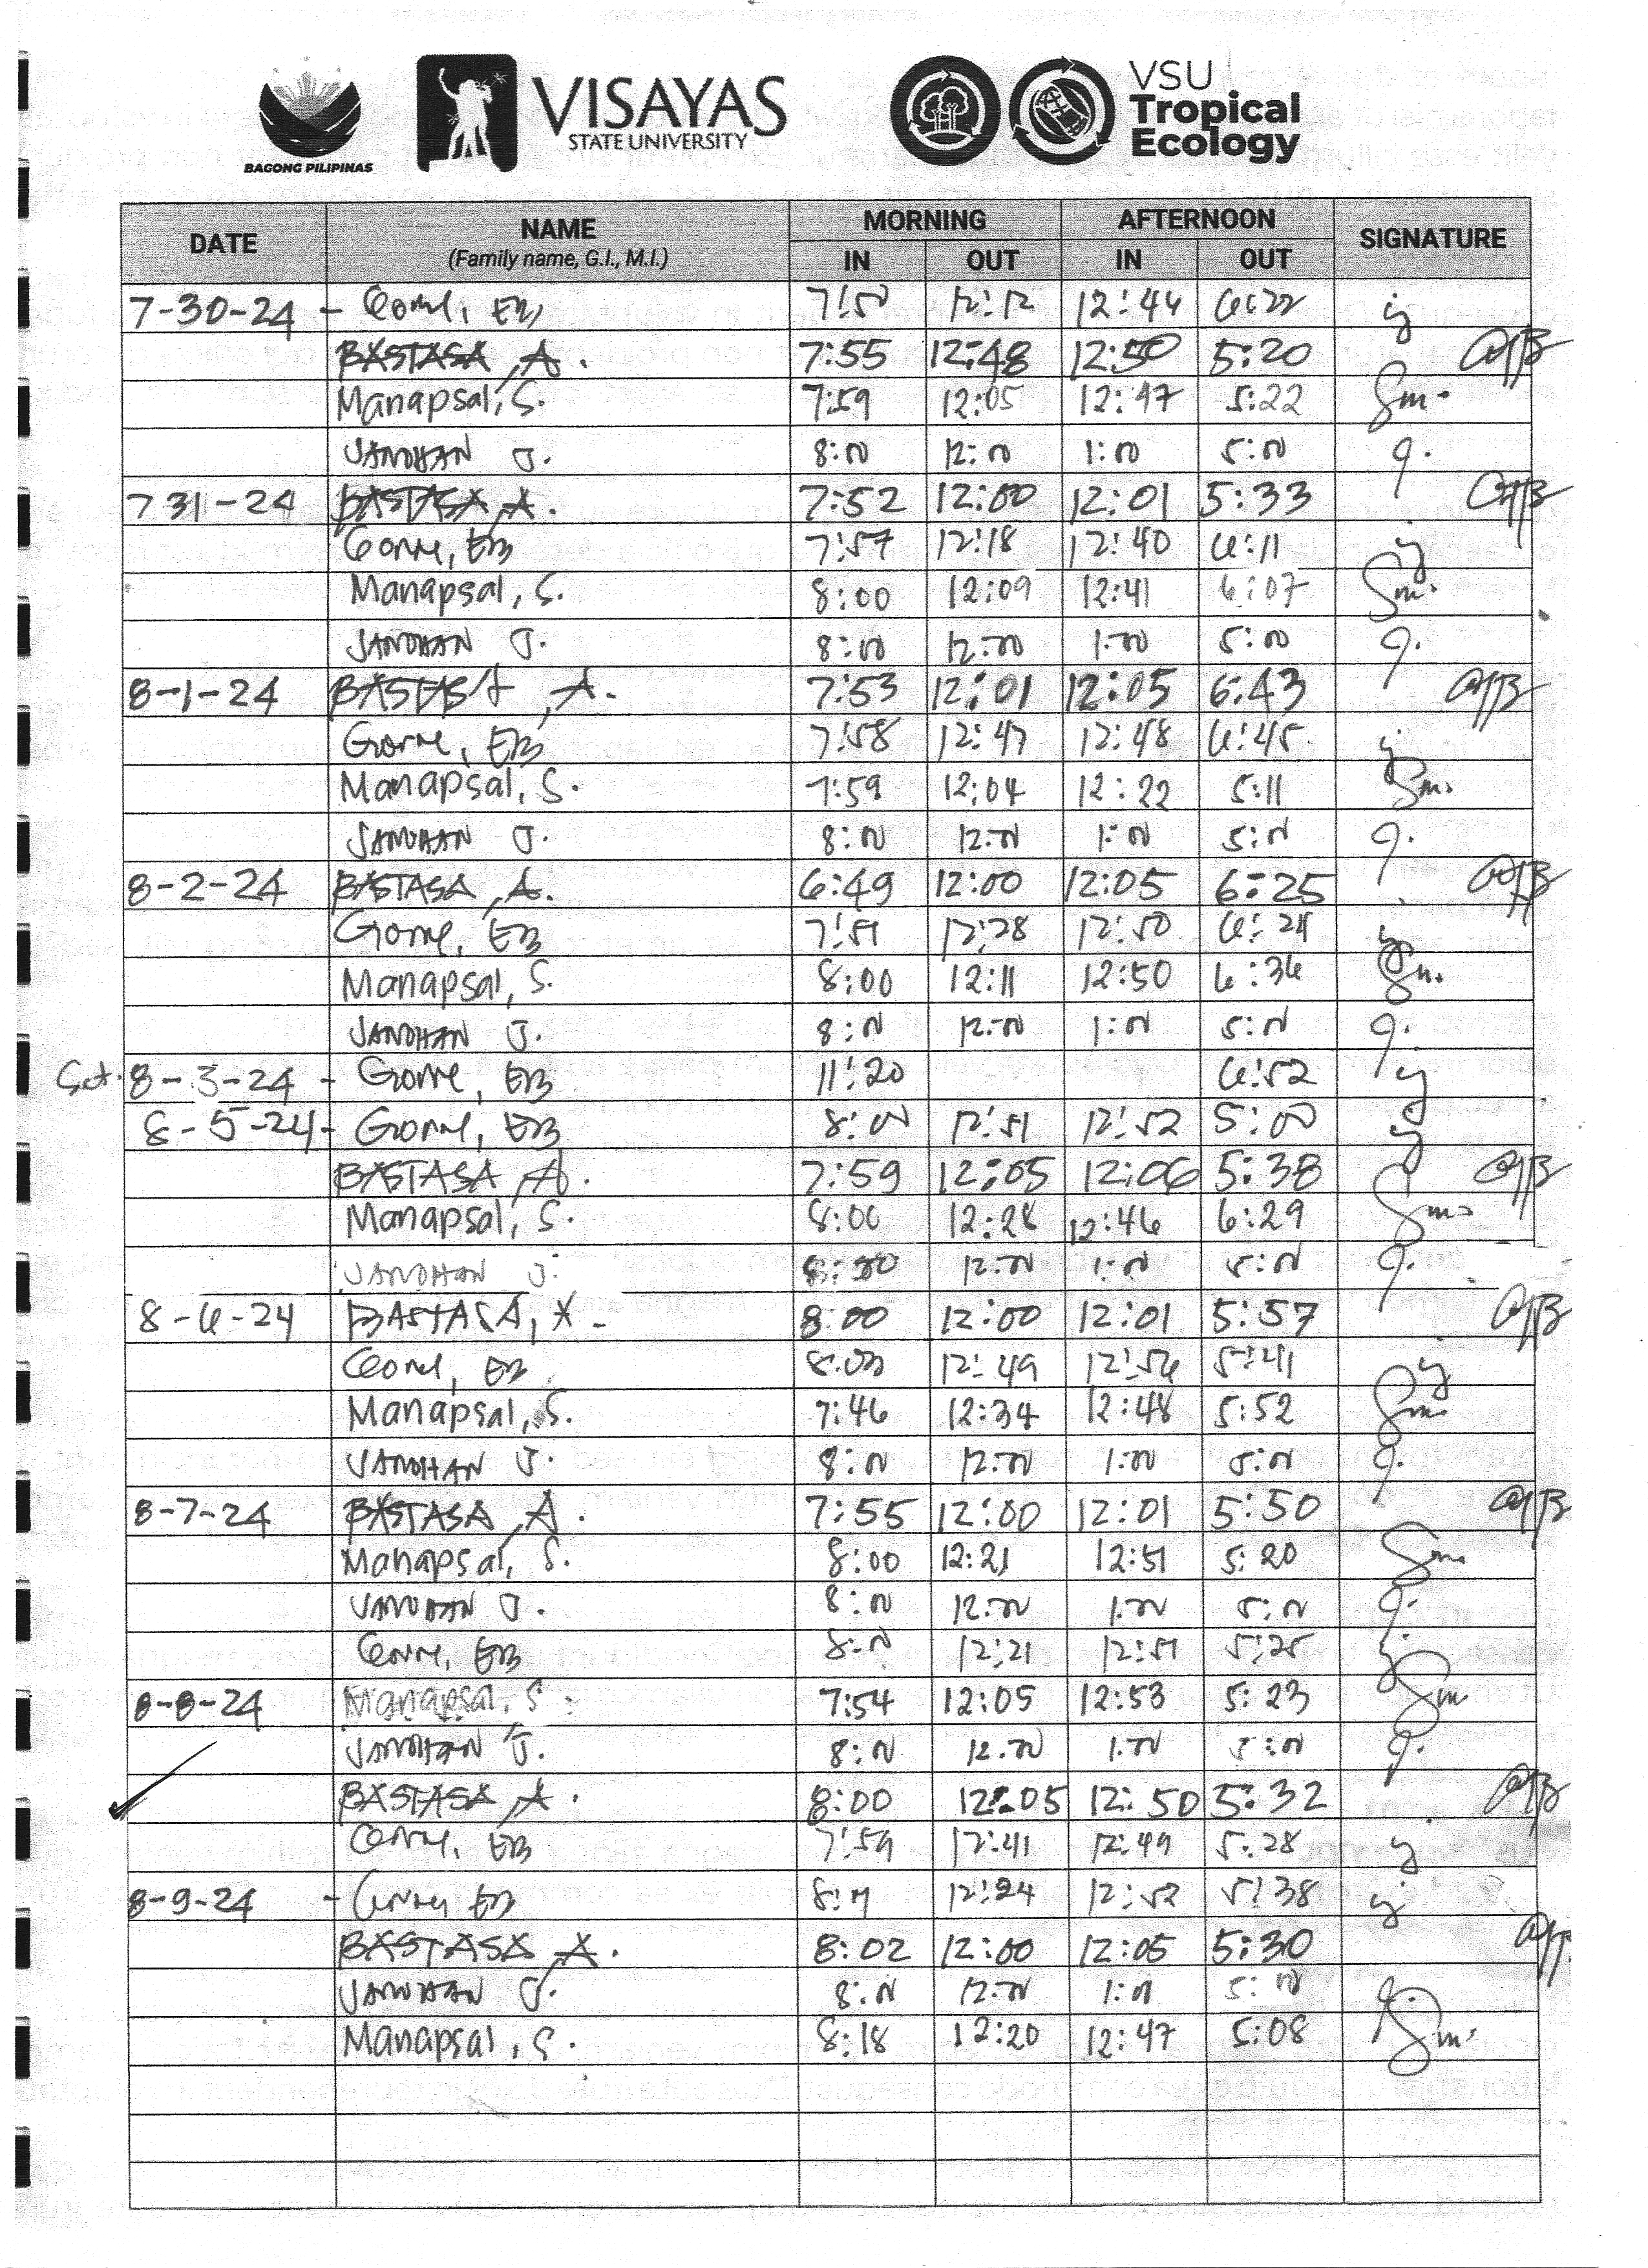 BAGONG PILIPINAS
VISAYAS
STATE UNIVERSITY
VSU
Tropical
Ecology
DATE NAME (Family name, G.I., M.I.) MORNING AFTERNOON SIGNATURE
IN OUT IN OUT
7-30-24 - Gorne, EB 12:12 12:44 6:22
BASTASA, A. 7:55 12:48 12:50 5:20
Manapsal, S. 7:59 12:05 12:47 5:22 Sm.
JANDHAN J. 8:00 12:00 1:00 5:00 J.
7 31-24 BASTASA, A. 7:52 12:00 12:01 5:33
Gorne, EB 7:57 12:18 12:40 6:11
Manapsal, S. 8:00 12:09 12:41 6:07 Sm.
JANDHAN J. 8:00 12:00 1:00 5:00 J.
8-1-24 BASTASA, A. 7:53 12:01 12:05 6:43
Gorne, EB 7:58 12:47 12:48 6:45
Manapsal, S. 7:59 12:04 12:22 5:11 Sm.
JANDHAN J. 8:00 12:00 1:00 5:00 J.
8-2-24 BASTASA, A. 6:49 12:00 12:05 6:25
Gorne, EB 7:51 12:28 12:50 6:24
Manapsal, S. 8:00 12:11 12:50 6:36 Sm.
JANDHAN J. 8:00 12:00 1:00 5:00 J.
Sat. 8-3-24 - Gorne, EB 11:20 6:52
8-5-24 - Gorne, EB 8:00 12:51 12:52 5:00
BASTASA, A. 7:59 12:05 12:06 5:38
Manapsal, S. 8:00 12:28 12:46 6:29 Sm.
JANDHAN J. 8:00 12:00 1:00 5:00 J.
8-6-24 BASTASA, A. 8:00 12:00 12:01 5:57
Gorne, EB 12:49 12:56 5:41
Manapsal, S. 7:46 12:34 12:48 5:52 Sm.
JANDHAN J. 8:00 12:00 1:00 5:00 J.
8-7-24 BASTASA, A. 7:55 12:00 12:01 5:50
Manapsal, S. 8:00 12:21 12:51 5:20 Sm.
JANDHAN J. 8:00 12:00 1:00 5:00 J.
Gorne, EB 8:00 12:21 12:51 5:25
8-8-24 Manapsal, S. 7:54 12:05 12:53 5:23 Sm
JANDHAN J. 8:00 12:00 1:00 5:00 J.
BASTASA, A. 8:00 12:05 12:50 5:32
Gorne, EB 7:59 12:41 12:49 5:28
8-9-24 - Gorne, EB 12:24 12:52 5:38
BASTASA, A. 8:02 12:00 12:05 5:30
JANDHAN J. 8:00 12:00 1:00 5:00 J.
Manapsal, S. 8:18 12:20 12:47 5:08 Sm.